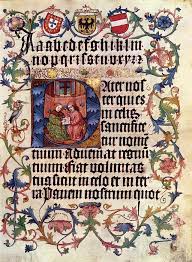 Aabcdefghiklm
nopqrs
Pater nos
ter qui es
in celis
sanctifice
tur nomen
tuum Adueniat regnum
tuum fiat voluntas
tua sicut in celo et in ter
ra Panem nostrum quot